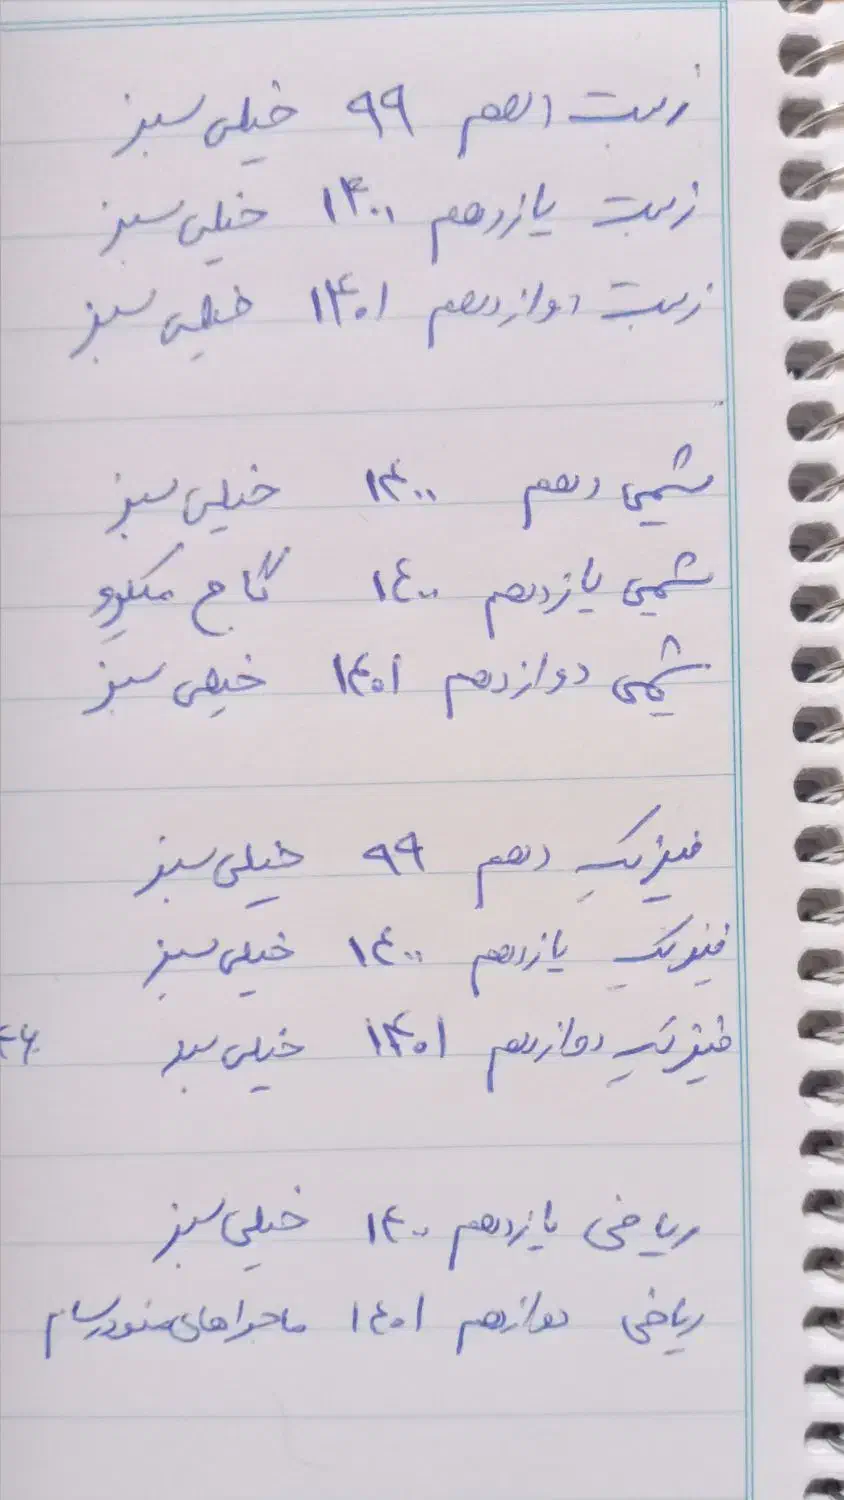 زیست دهم ۹۹ خیلی سبز
زیست یازدهم ۱۴۰۰ خیلی سبز
زیست دوازدهم ۱۴۰۱ خیلی سبز
شیمی دهم ۱۴۰۰ خیلی سبز
شیمی یازدهم ۱۴۰۰ گاج میکرو
شیمی دوازدهم ۱۴۰۱ خیلی سبز
فیزیک دهم ۹۹ خیلی سبز
فیزیک یازدهم ۱۴۰۰ خیلی سبز
فیزیک دوازدهم ۱۴۰۱ خیلی سبز
ریاضی یازدهم ۱۴۰۰ خیلی سبز
ریاضی دوازدهم ۱۴۰۱ ماجراهای